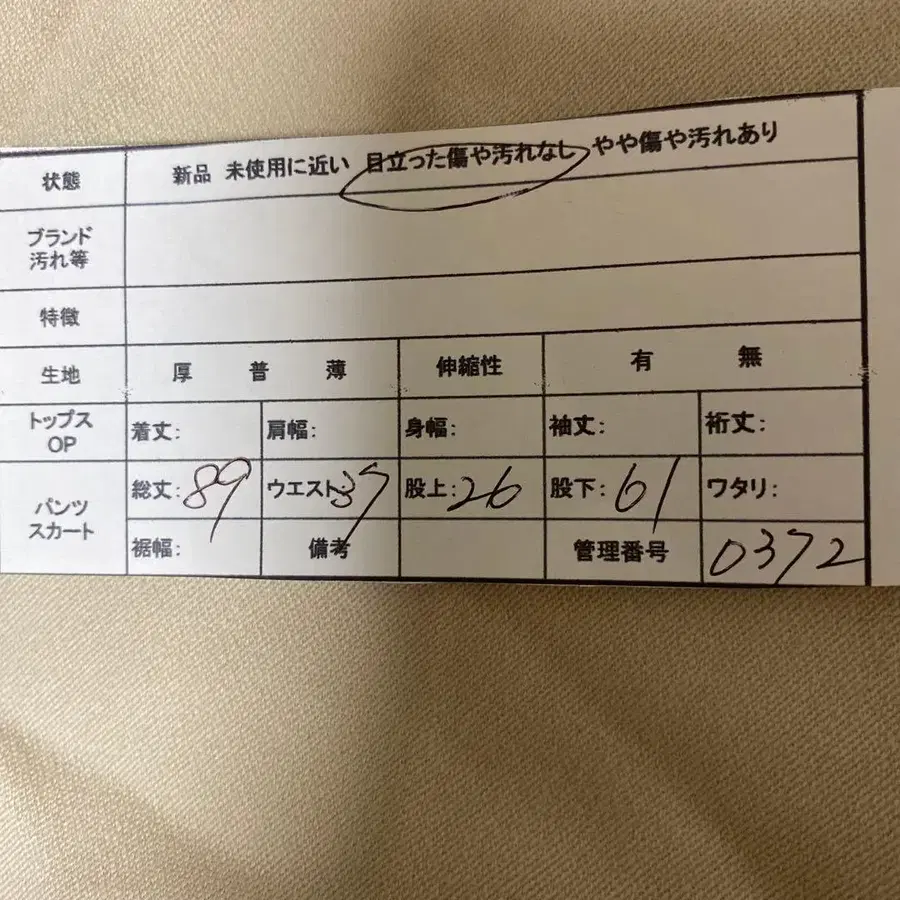 状態 新品 未使用に近い 目立った傷や汚れなし やや傷や汚れあり
ブランド
汚れ等
特徴
生地 厚 普 薄 伸縮性 有 無
トップス
OP
着丈: 肩幅: 身幅: 袖丈: 裄丈:
パンツ
スカート
総丈:89 ウエスト:37 股上:26 股下:61 ワタリ:
裾幅: 備考 管理番号 0372